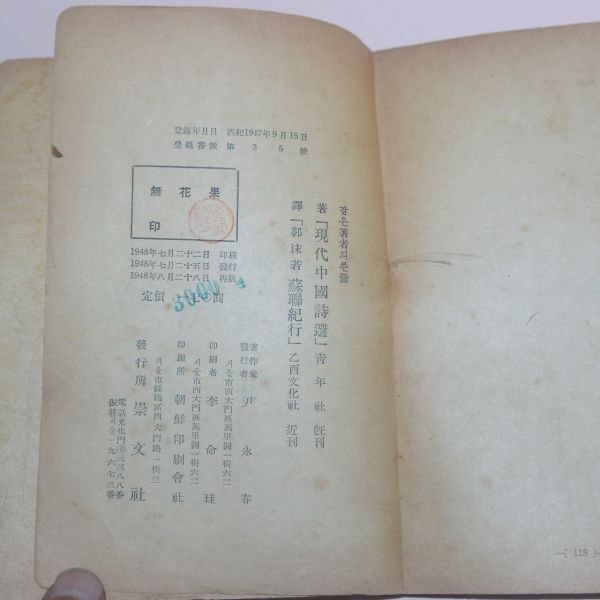 登錄年月日 西紀1947年9月15日
登錄番號 第 3 5 號
無花果
印
1948年七月二十二日 印刷
1948年七月二十五日 發行
1948年八月二十八日 再版
定價
3000
같은著者의
著「現代中國詩選」靑年社 旣刊
譯「郭沫若 蘇聯紀行」乙酉文化社 近刊
著作兼
發行者 尹永春
서울市西大門區萬里洞一街六二
印刷者 李命珪
서울市西大門區萬里洞一街六二
印刷所 朝鮮印刷會社
서울市鍾路區西大門路一街三
發行所 崇文社
電話光化門③三三八八番
振替서울一九六七三番
—( 118 )—